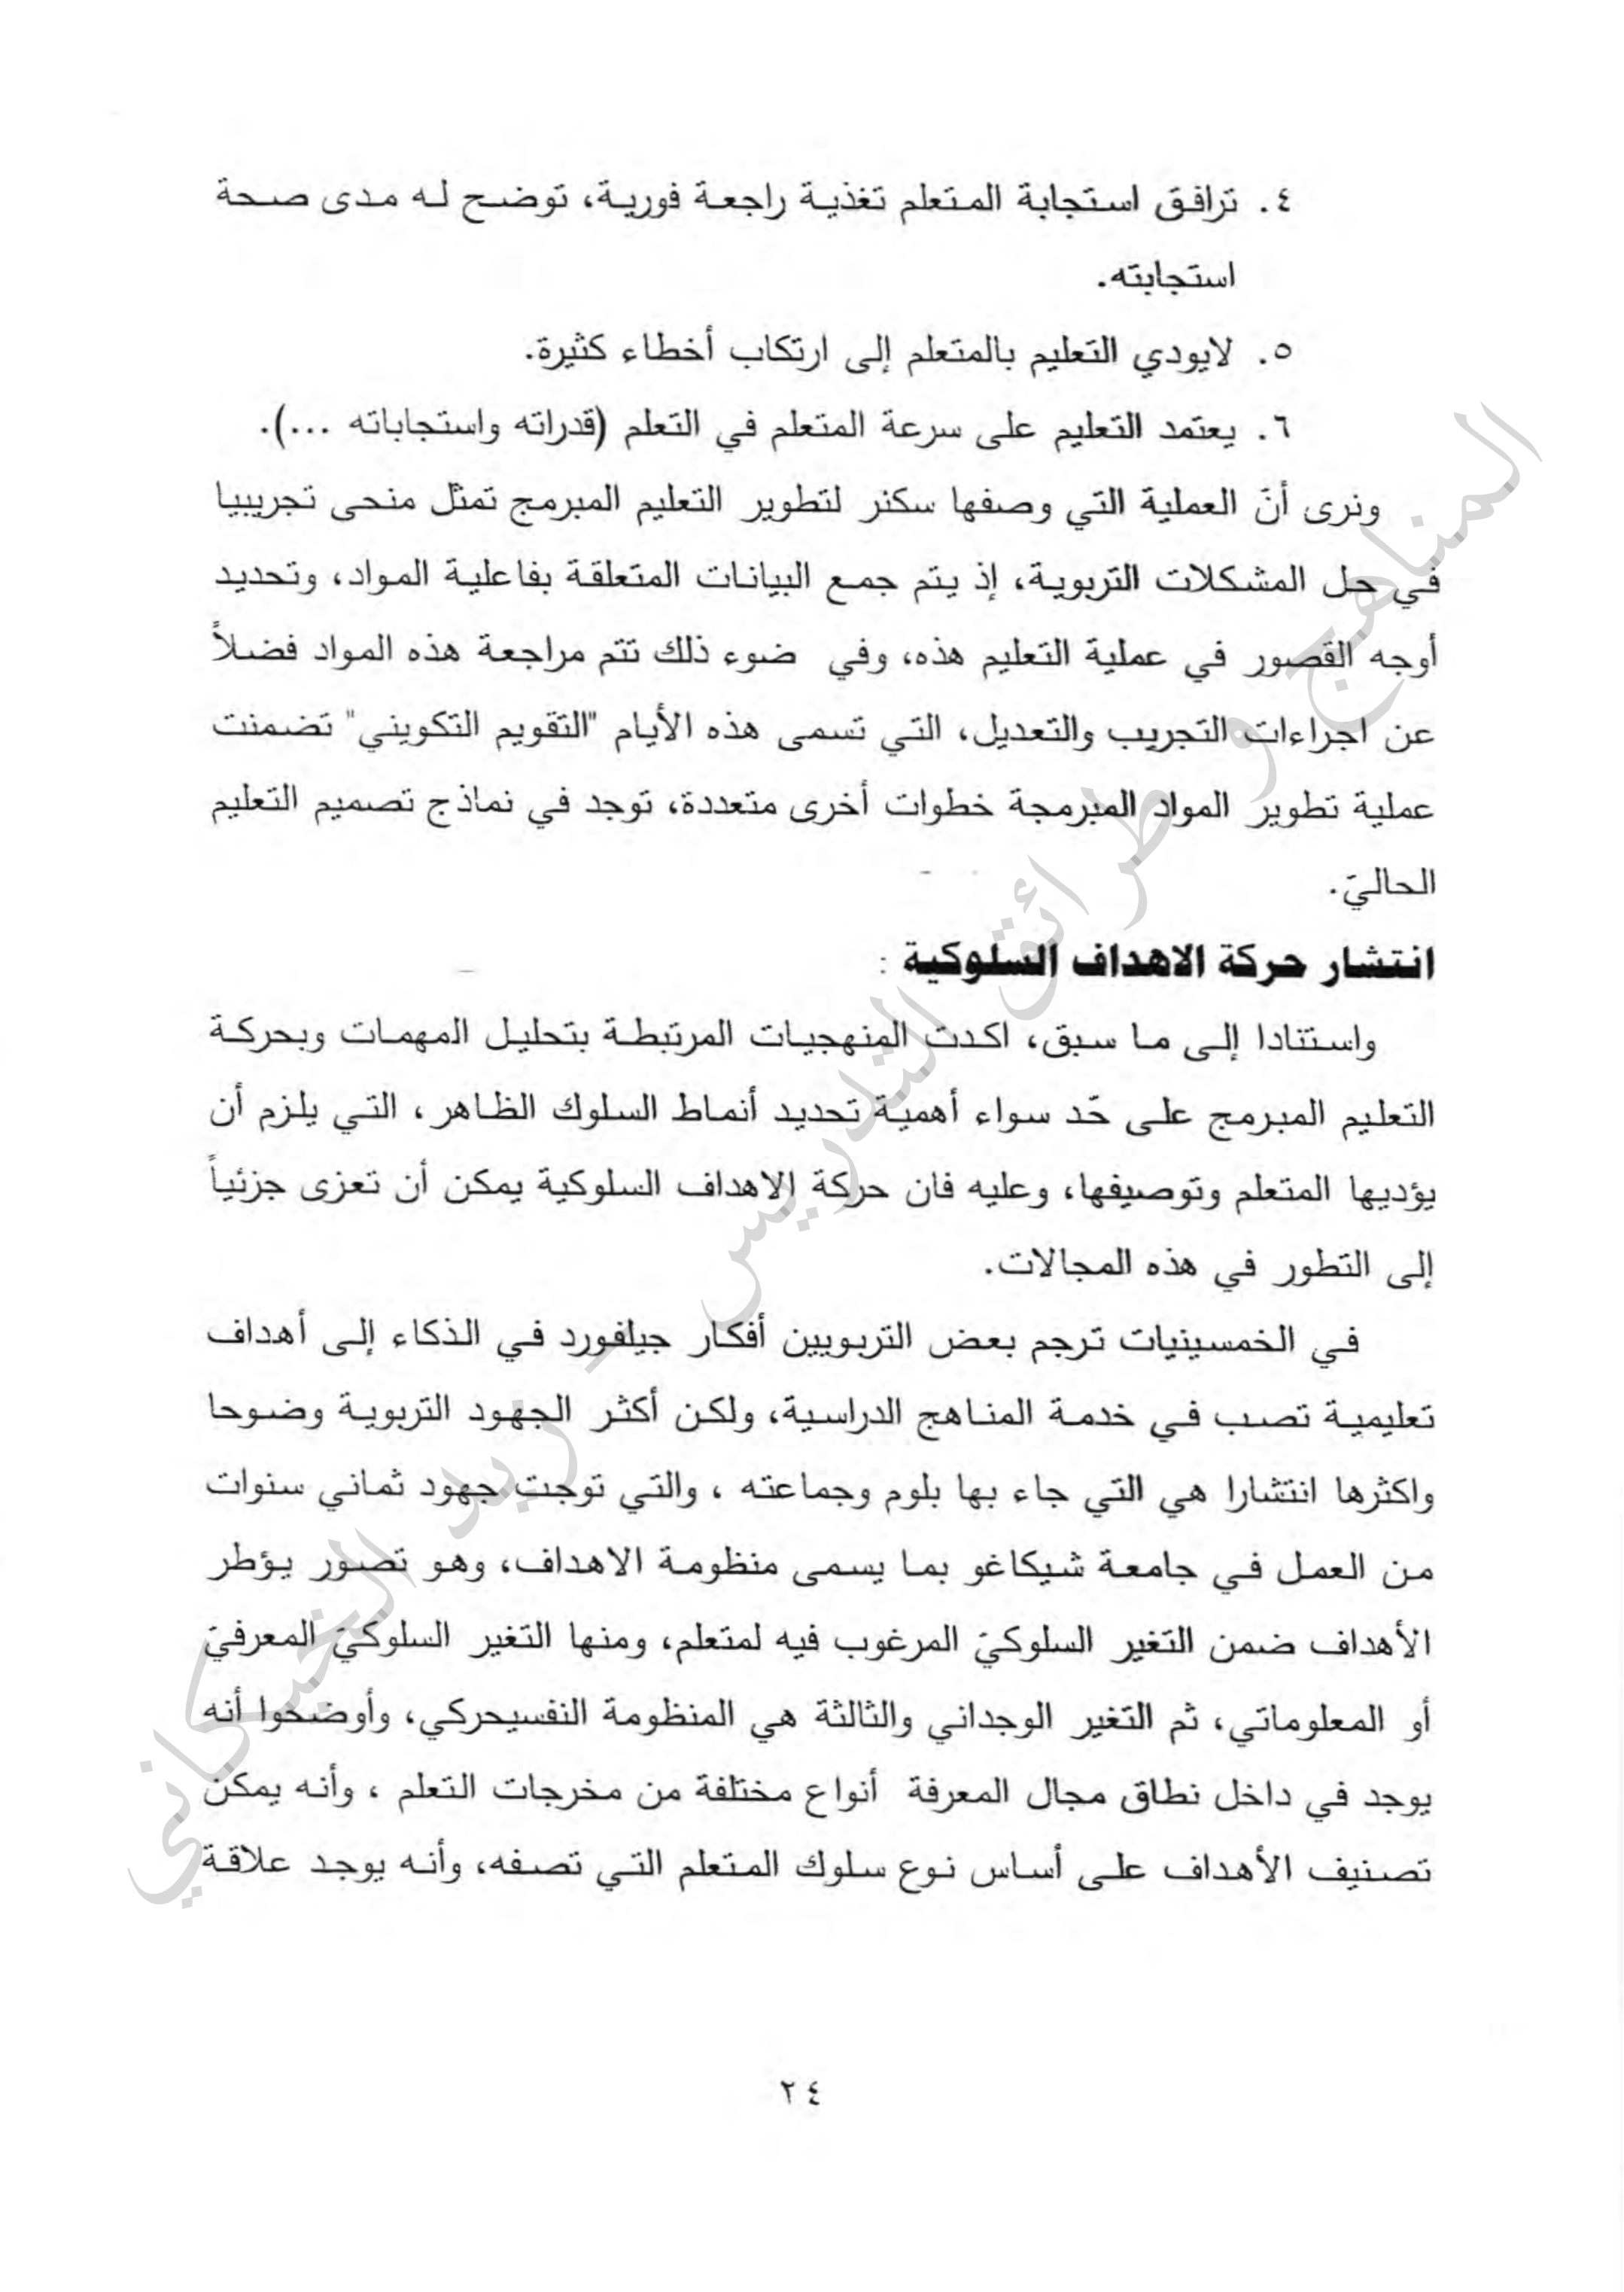 ٤. ترافق استجابة المتعلم تغذية راجعة فورية، توضح له مدى صحة
استجابته.
٥. لايودي التعليم بالمتعلم إلى ارتكاب أخطاء كثيرة.
٦. يعتمد التعليم على سرعة المتعلم في التعلم (قدراته واستجاباته ...).
ونرى أنَ العملية التي وصفها سكنر لتطوير التعليم المبرمج تمثل منحى تجريبيا
في حل المشكلات التربوية، إذ يتم جمع البيانات المتعلقة بفاعلية المواد، وتحديد
أوجه القصور في عملية التعليم هذه، وفي ضوء ذلك تتم مراجعة هذه المواد فضلاً
عن اجراءات التجريب والتعديل، التي تسمى هذه الأيام "التقويم التكويني" تضمنت
عملية تطوير المواد المبرمجة خطوات أخرى متعددة، توجد في نماذج تصميم التعليم
الحاليَ.
انتشار حركة الاهداف السلوكية :
واستنادا إلى ما سبق، اكدت المنهجيات المرتبطة بتحليل المهمات وبحركة
التعليم المبرمج على حَد سواء أهمية تحديد أنماط السلوك الظاهر، التي يلزم أن
يؤديها المتعلم وتوصيفها، وعليه فان حركة الاهداف السلوكية يمكن أن تعزى جزئياً
إلى التطور في هذه المجالات.
في الخمسينيات ترجم بعض التربويين أفكار جيلفورد في الذكاء إلى أهداف
تعليمية تصب في خدمة المناهج الدراسية، ولكن أكثر الجهود التربوية وضوحا
واكثرها انتشارا هي التي جاء بها بلوم وجماعته ، والتي توجت جهود ثماني سنوات
من العمل في جامعة شيكاغو بما يسمى منظومة الاهداف، وهو تصور يؤطر
الأهداف ضمن التغير السلوكيَ المرغوب فيه لمتعلم، ومنها التغير السلوكيَ المعرفيَ
أو المعلوماتي، ثم التغير الوجداني والثالثة هي المنظومة النفسيحركي، وأوضحوا أنه
يوجد في داخل نطاق مجال المعرفة أنواع مختلفة من مخرجات التعلم ، وأنه يمكن
تصنيف الأهداف على أساس نوع سلوك المتعلم التي تصفه، وأنه يوجد علاقة
٢٤
المناهج و طرائق التدريس – زيد الخيكاني